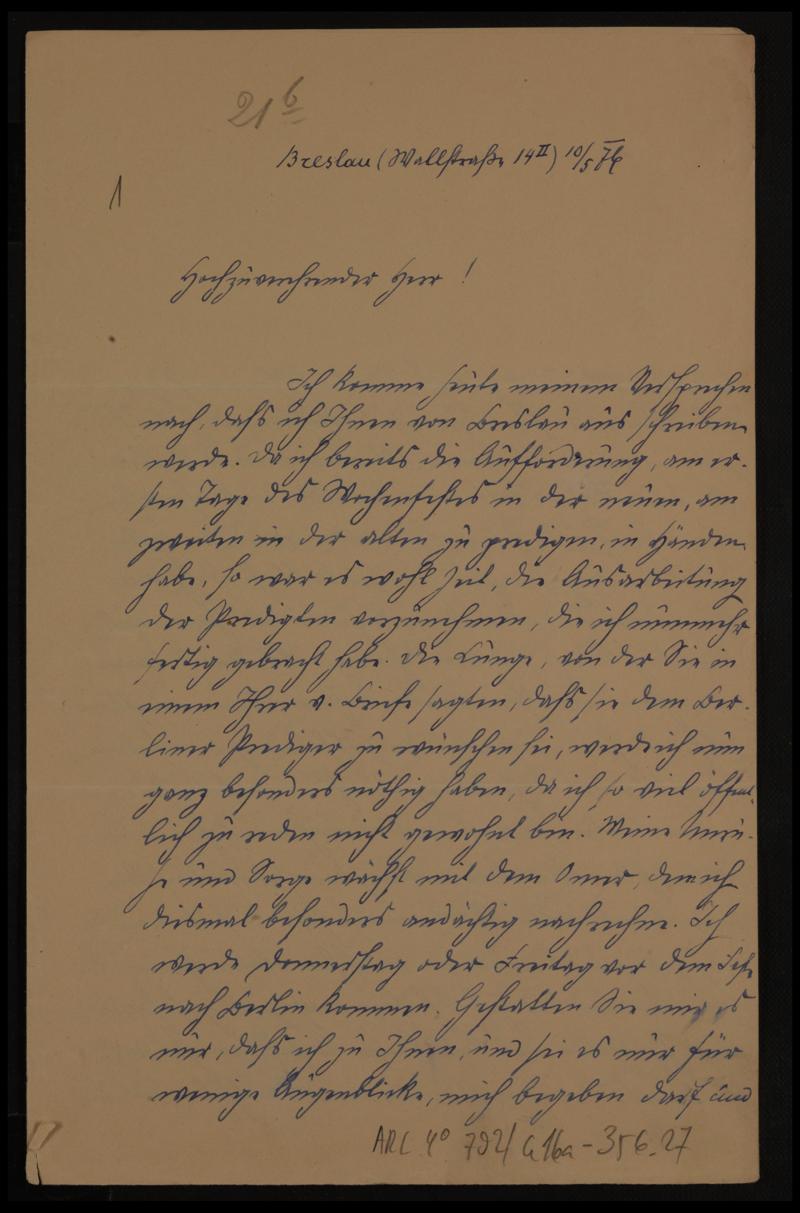 21 b
Breslau (Wallstraße 14 II) 10/5 76
1
Hochzuverehrender Herr!
Ich komme heute meinem Versprechen
nach, daſs ich Ihnen von Breslau aus schreiben
werde. Da ich bereits die Aufforderung, am er-
sten Tage des Wochenfestes in der neuen, am
zweiten in der alten zu predigen, in Händen
habe, so war es wohl Zeit, die Ausarbeitung
der Predigten vorzunehmen, die ich nunmehr
fertig gebracht habe. Die Lunge, von der Sie in
einem Ihrer v. Briefe sagten, daſs sie dem Ber-
liner Prediger zu wünschen sei, werde ich nun
ganz besonders nöthig haben, da ich so viel öffent-
lich zu reden nicht gewohnt bin. Meine Unru-
he und Sorge wächst mit dem Omer, dem ich
diesmal besonders andächtig nachrechne. Ich
werde Donnerstag oder Freitag vor dem Feste
nach Berlin kommen. Gestatten Sie mir es
nur, daſs ich zu Ihnen, und sei es nur für
wenige Augenblicke, mich begeben darf und
ARC 4° 792/G16a-356.27